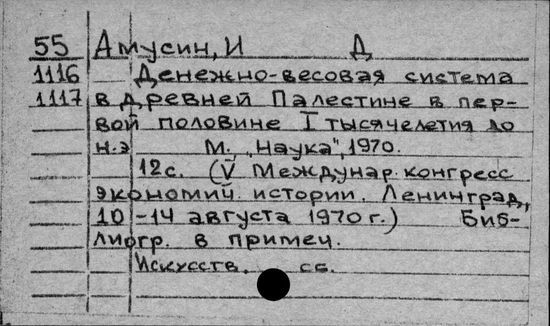 55 Амусин, И Д
1116 Денежно-весовая система
1117 в древней Палестине в пер-
вой половине I тысячелетия до
н.э М. "Наука", 1970.
12с. (V Междунар. конгресс
экономич. истории. Ленинград,
10-14 августа 1970 г.) Биб-
лиогр. в примеч.
Искусств. сб.